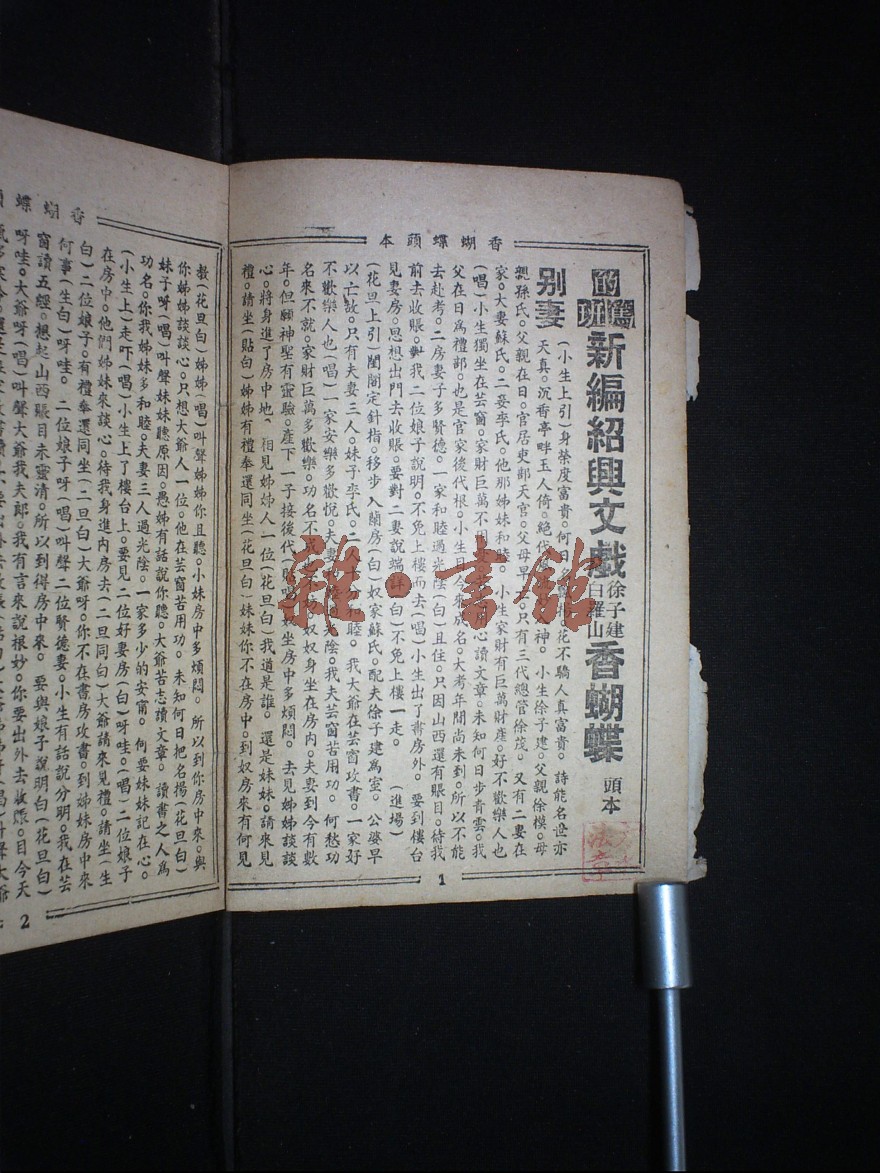 香蝴蝶頭本
的篤班
新編紹興文戲
徐子建
白羅山
香蝴蝶
頭本
別妻
(小生上引)身榮度富貴。何日
花不驕人真富貴。詩能名世亦
天真。沉香亭畔玉人倚。絕代
神。小生徐子建。父親徐模。母
親孫氏。父親在日。官居吏部天官。父母早
只有三代總管徐茂。又有二妻在
家。大妻蘇氏。二妾李氏。他那姊妹和睦。小生家財有巨萬財產。好不歡樂人也
(唱)小生獨坐在芸窗。家財巨萬不
心讀文章。未知何日步青雲。我
父在日爲禮部。也是官家後代根。小生目今來成名。大考年間尚未到。所以不能
去赴考。二房妻子多賢德。一家和睦過光陰(白)且住。只因山西還有賬目。待我
前去收賬。對我二位娘子說明。不免上樓而去(唱)小生出了書房外。要到樓台
見妻房。思想出門去收賬。要對二妻說端詳(白)不免上樓一走。(進場)
(花旦上引)閨閣定針指。移步入蘭房(白)奴家蘇氏。配夫徐子建爲室。公婆早
以亡故。只有夫妻三人。妹子李氏。二人十分和睦。我大爺在芸窗攻書。一家好
不歡樂人也(唱)一家安樂多歡悅。夫妻
光陰。我夫芸窗苦用功。何愁功
名來不就。家財巨萬多歡樂。功名不成
奴奴身坐在房內。夫妻到今有數
年。但願神聖有靈驗。產下一子接後代(貼唱)奴坐房中多煩悶。去見姊姊談談
心。將身進了房中地。相見姊姊人一位(花旦白)我道是誰。還是妹妹。請來見
禮。請坐(貼白)姊姊有禮奉還同坐(花旦白)妹妹你不在房中。到奴房來有何見
1
雜·書館
香蝴蝶
教(花旦白)姊姊(唱)叫聲姊姊你且聽。小妹房中多煩悶。所以到你房中來。與
你姊姊談談心。只想大爺人一位。他在芸窗苦用功。未知何日把名揚(花旦白)
妹子呀(唱)叫聲妹妹聽原因。愚姊有話說你聽。大爺苦志讀文章。讀書之人爲
功名。你我姊妹多和睦。夫妻三人過光陰。一家多少的安甯。何要妹妹記在心。
(小生上)走吓(唱)小生上了樓台上。要見二位好妻房(白)呀哇。(唱)二位娘子
在房中。他們姊妹來談心。待我身進內房去(二旦同白)大爺請來見禮。請坐(生
白)二位娘子。有禮奉還同坐(二旦白)大爺呀。你不在書房攻書。到姊妹房中來
何事(生白)呀哇。二位娘子呀(唱)叫聲二位賢德妻。小生有話說分明。我在芸
窗讀五經。想起山西賬目未靈清。所以到得房中來。要與娘子說明白(花旦白)
呀哇。大爺呀(唱)叫聲大爺我夫郎。我有言來說根妙。你要出外去收賬。目今天
2